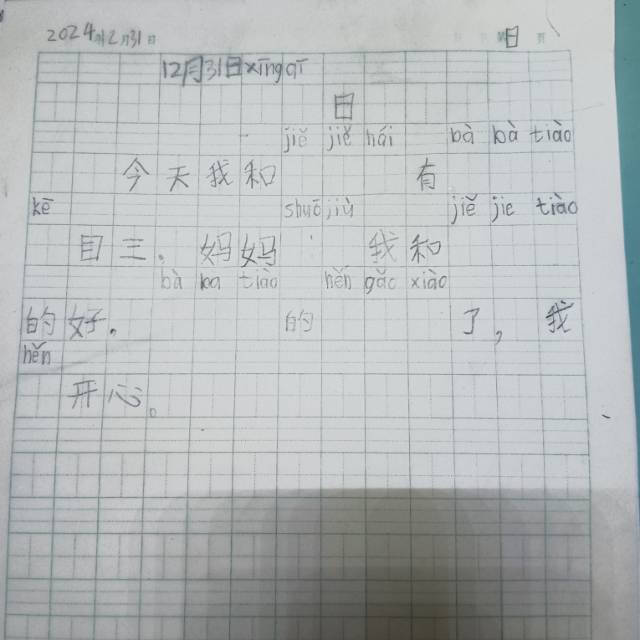 2024年12月31日 日
12月31日xīngqī
日
jiě jiě hái bà bà tiào
今天我和 有
kē shuō jiù jiě jie tiào
目三。妈妈 我和
bà ba tiào hěn gǎo xiào
的好。 的 了，我
hěn
开心。